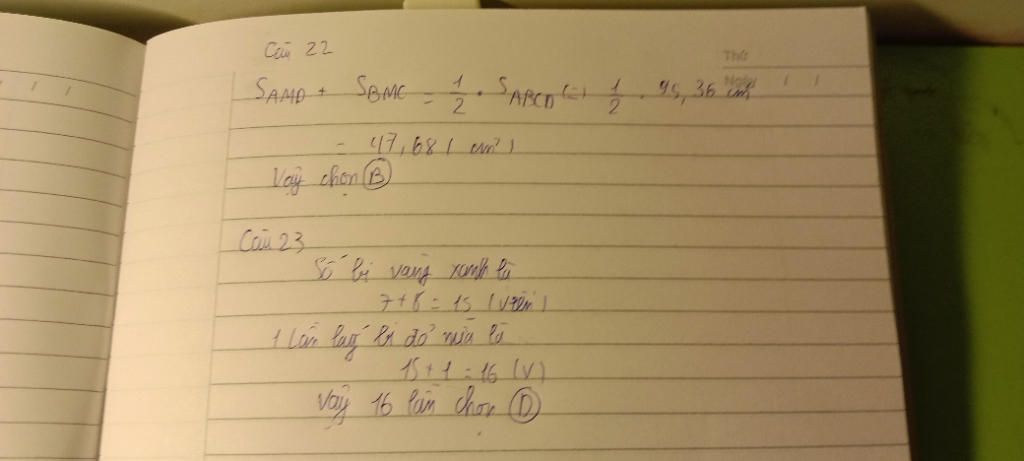 Câu 22
Thứ
Ngày
S AMD + S BMC = 1/2 . S ABCD (=) 1/2 . 95,36 cm²
= 47,68 ( cm² )
Vậy chọn B
Câu 23
Số bi vàng xanh là
7 + 8 = 15 ( viên )
1 lần lấy bi đỏ nữa là
15 + 1 = 16 (v)
Vậy 16 lần chọn D